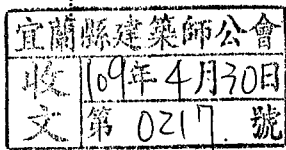 宜蘭縣建築師公會
收文
109年4月30日
第 0217. 號